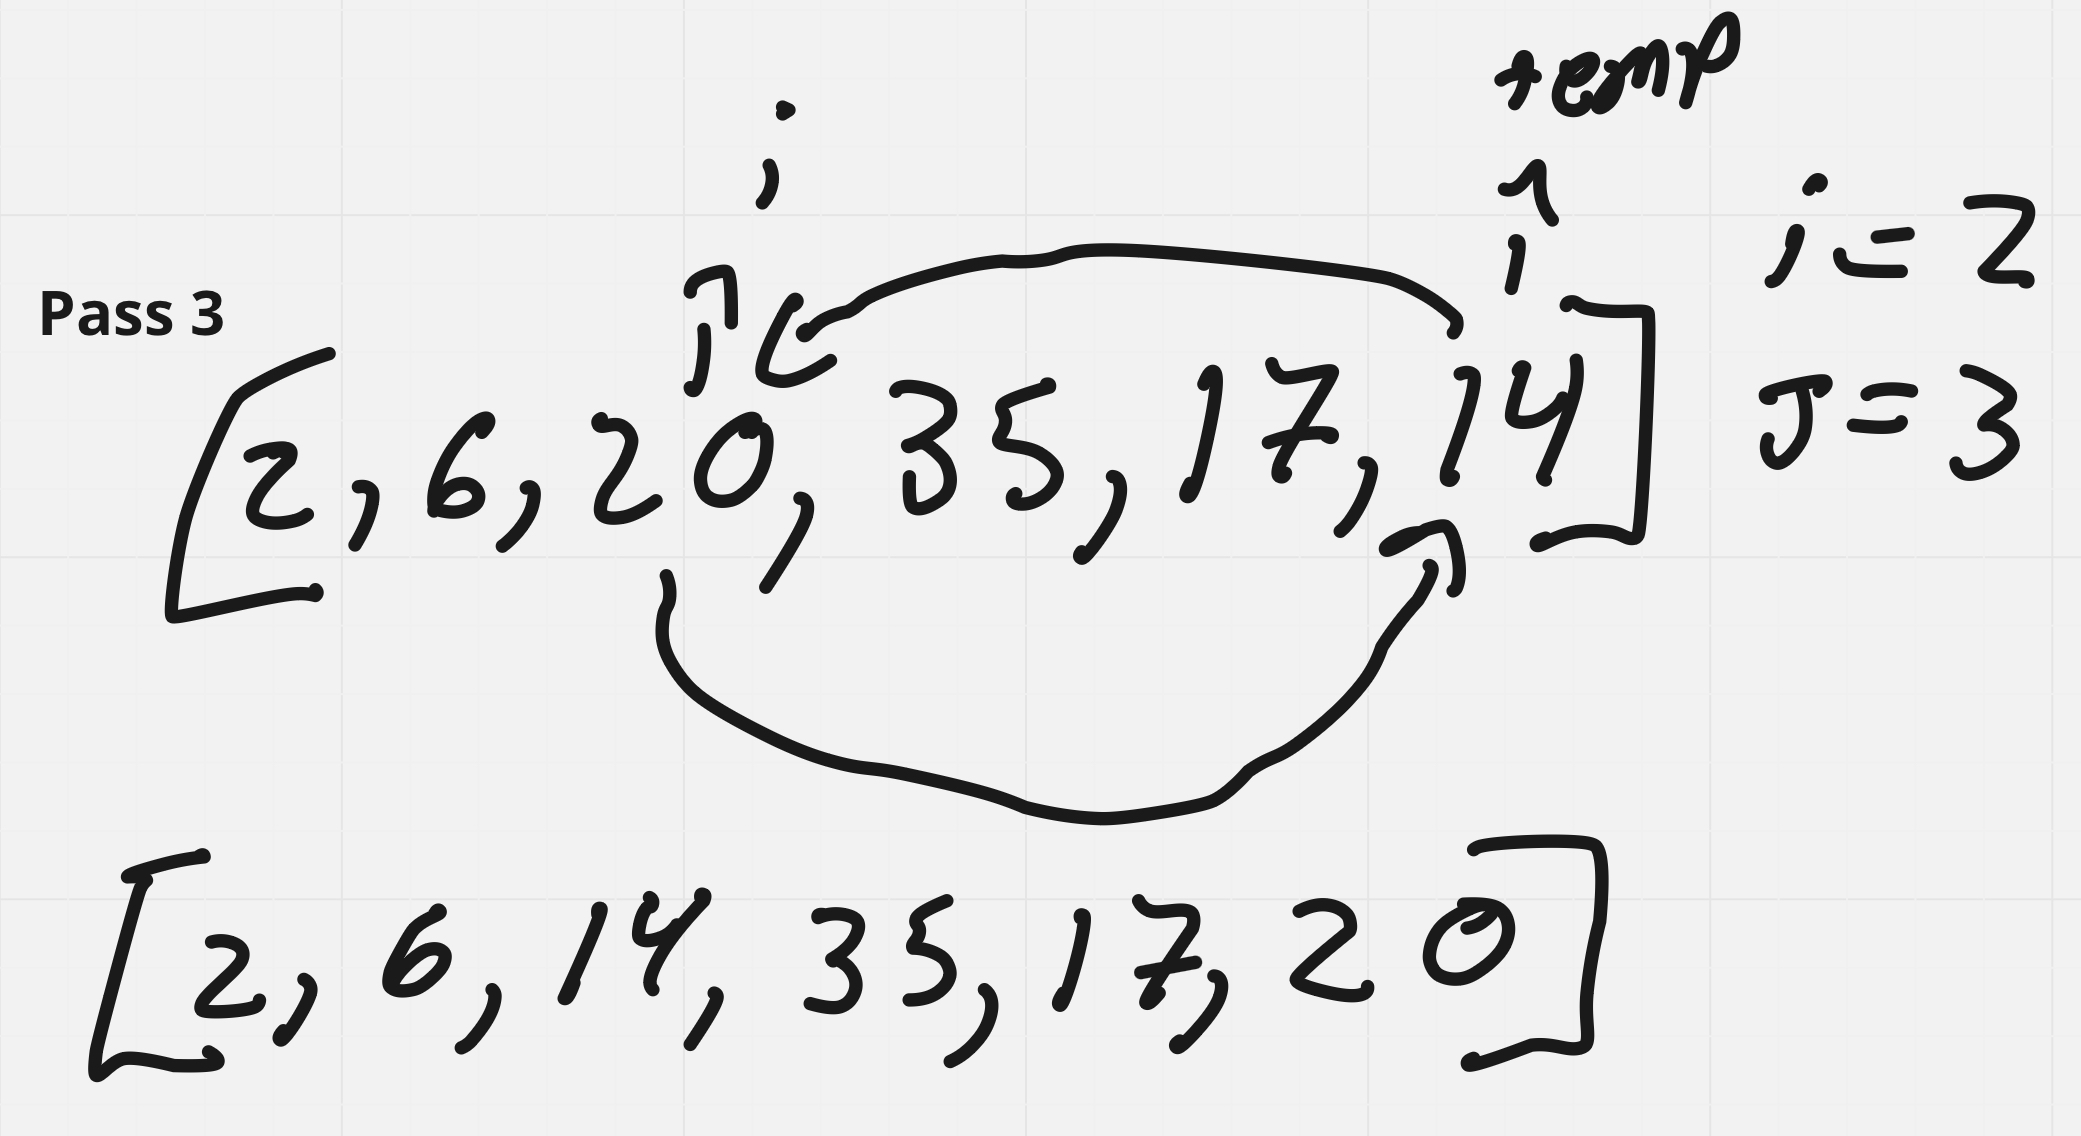 temp
i
i = 2
Pass 3
[2, 6, 20, 35, 17, 14]
J = 3
[2, 6, 14, 35, 17, 20]